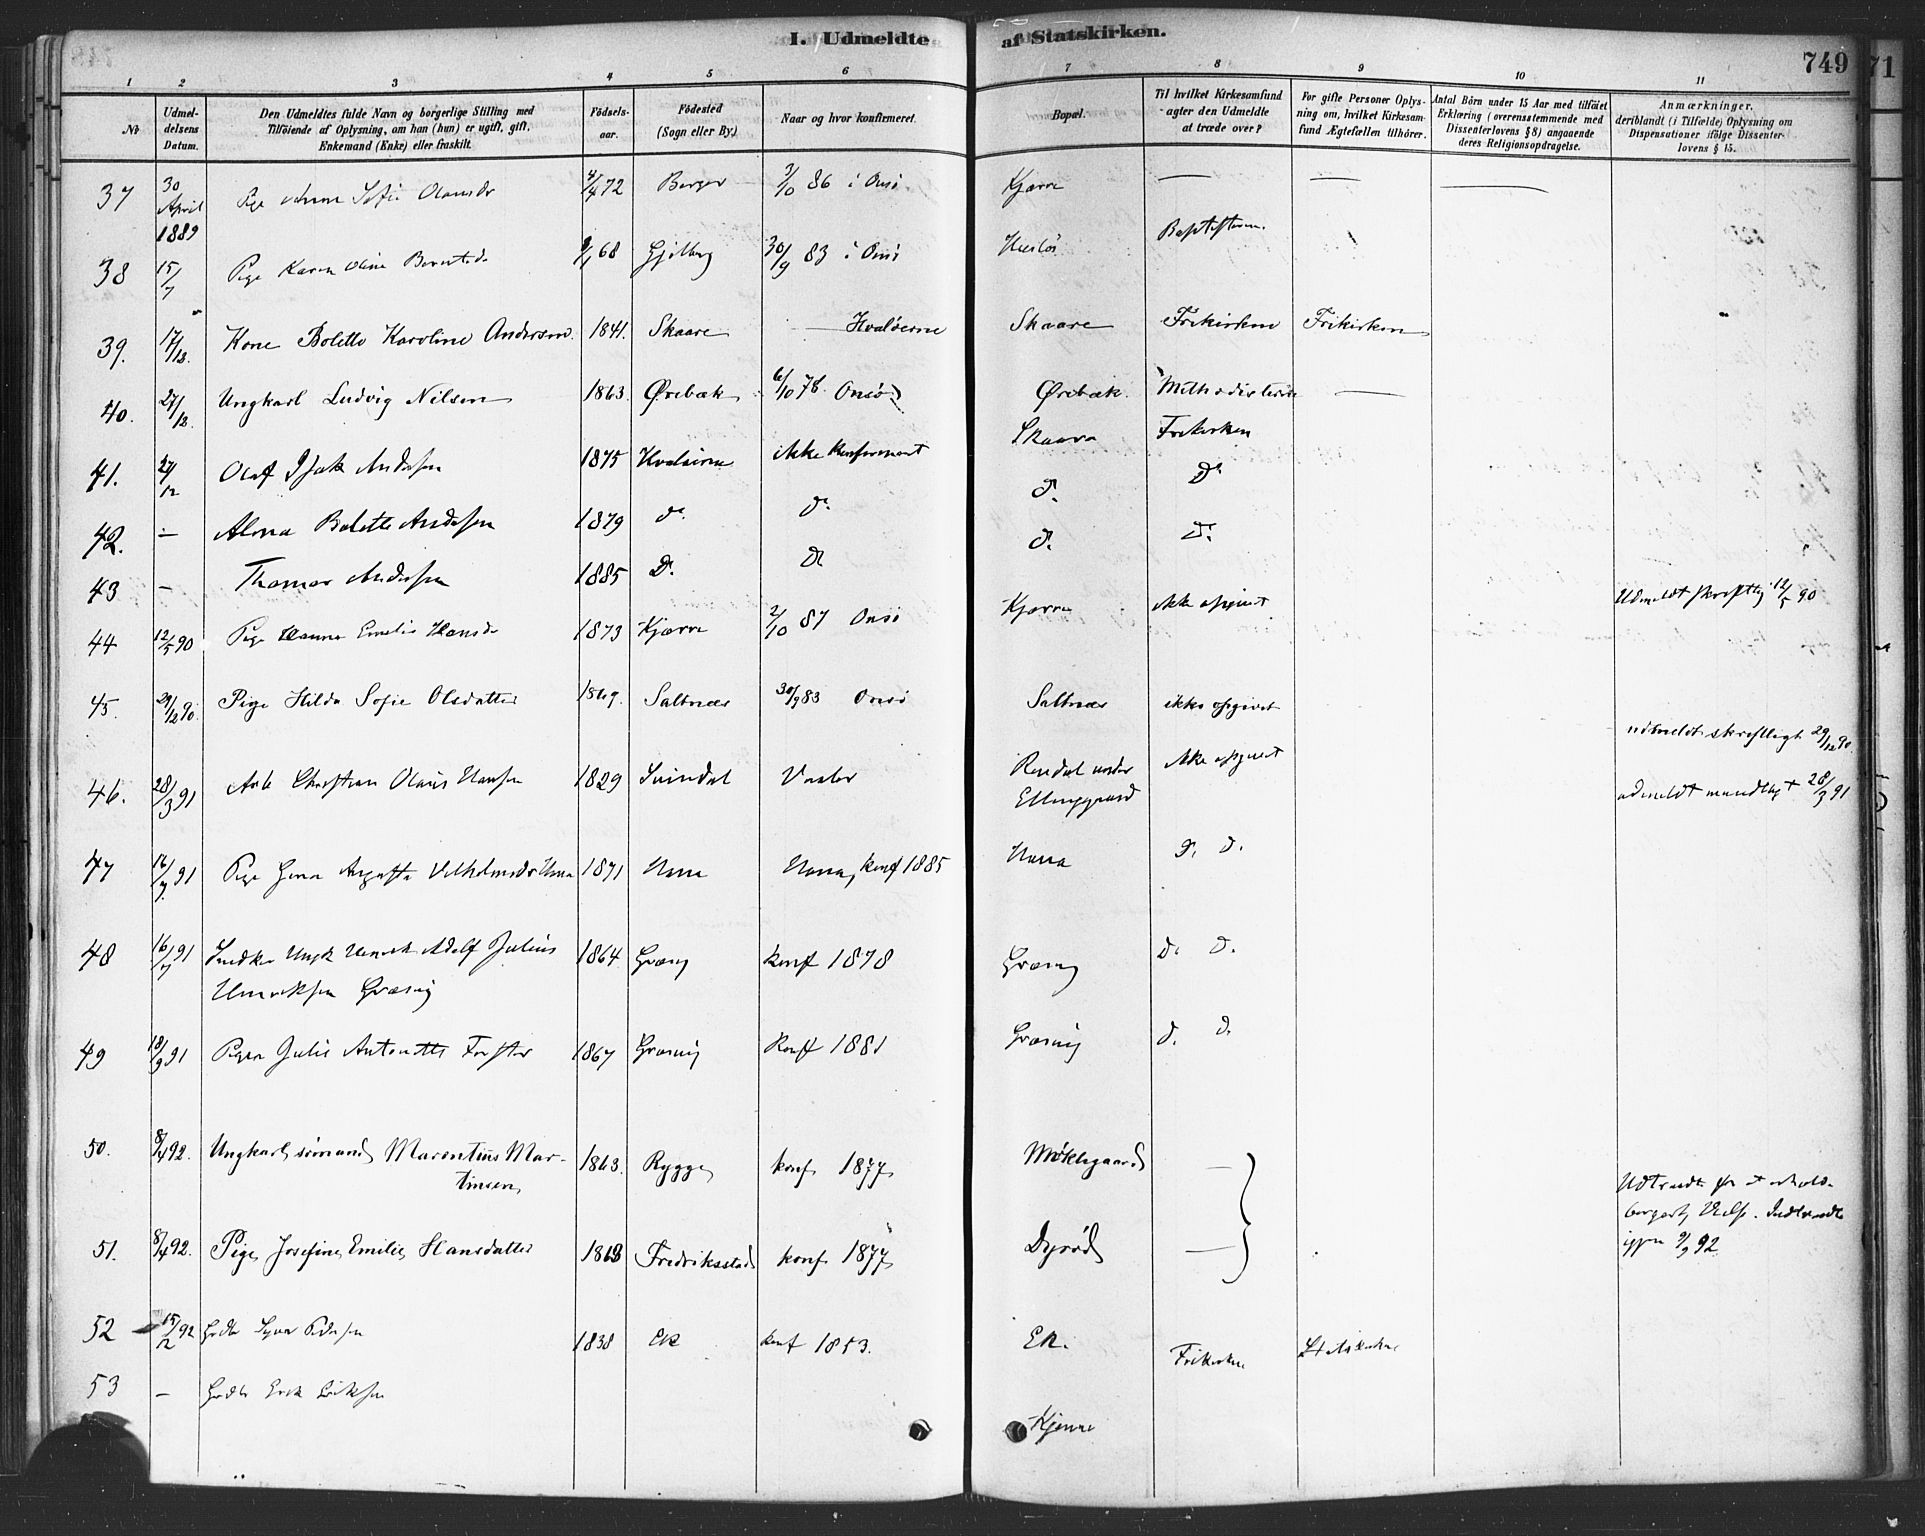 I. Udmeldte af Statskirken.
749
71
1 2 3 4 5 6 7 8 9 10 11
No
Udmeldelsens Datum.
Den Udmeldtes fulde Navn og borgerlige Stilling med
Tilføiende af Oplysning, om han (hun) er ugift, gift,
Enkemand (Enke) eller fraskilt.
Fødselsaar.
Fødested
(Sogn eller By.)
Naar og hvor konfirmeret.
Bopæl.
Til hvilket Kirkesamfund
agter den Udmeldte
at træde over?
For gifte Personer Oplys-
ning om, hvilket Kirkesam-
fund Ægtefællen tilhører.
Antal Børn under 15 Aar med tilføiet
Erklæring (overensstemmende med
Dissenterlovens § 8) angaaende
deres Religionsopdragelse.
Anmærkninger,
deriblandt (i Tilfælde) Oplysning om
Dispensationer ifølge Dissenter-
lovens § 15.
37 30 April 1889 Pige Anna Sofie Olausdr 4/4 72 Berger 3/10 86 i Onsø Kjærre — — —
38 15/7 Pige Karen Oline Berntsd. 68 Gjølberg 30/9 83 i Onsø Huslø Baptisterne.
39. 17/12. Kone Bolette Karoline Andersen. 1841. Skaare — Hvaløerne Skaare Frikirken Frikirken
40. 27/12. Ungkarl Ludvig Nilsen 1863. Ørebæk 6/10 78. Onsø Ørebæk. Methodisterne —
41. 27/12 Olaf Isak Andersen 1875 Hvaløerne ikke konfirmert Skaare Frikirken
42. — Alma Bolette Andersen 1879 do. do. do. Do
43 — Thomas Andersen 1885 Do. Do do. Do.
44 12/5 90 Pige Hanna Emelie Hansd. 1873 Kjærre 2/10 87 Onsø Kjærre ikke opgivet Udmeldt skriftlig 12/5 90
45. 29/12 90. Pige Hilda Sofie Olsdatter 1869. Saltnæs 30/9 83 Onsø Saltnæs ikke opgivet udmeldt skriftligt 29/12 90.
46. 28/3 91 Christian Olaus Hansen 1829 Svindal Vaaler Rendal under
Ellinggaard ikke opgivet udmeldt mundligt 28/3 91
47 16/7. 91 Pige Augusta Vilhelmsdr Huna 1871 Huna, konf 1885 d. d.
48 16/7 91 Snedker Ungk Henrik Adolf Julius 1864. Græsvig konf 1878 Græsvig d. d.
Henriksen Græsvig
49 18/9 91 Pigen Julie Antonette Forster 1867 Græsvig Konf 1881 Græsvig d. d.
50. 8/4 92. Ungkarl sømand Marentius Mar-
tinsen 1863. Rygge konf 1877 Møklegaard — Udtraadte for at erholde
borgerlig Vielse. Indtraadte
igjen 9/9 92
51. 8/4 92. Pige Josefine Emilie Hansdatter 1863 Fredriksstad konf 1877 Dyrød —
52 15/12 92 Gaardb. Syver Pedersen 1838 Ek konf 1853. Ek. Frikirken Statskirken
53 — Gaardb. Erik Eriksen Kjærre